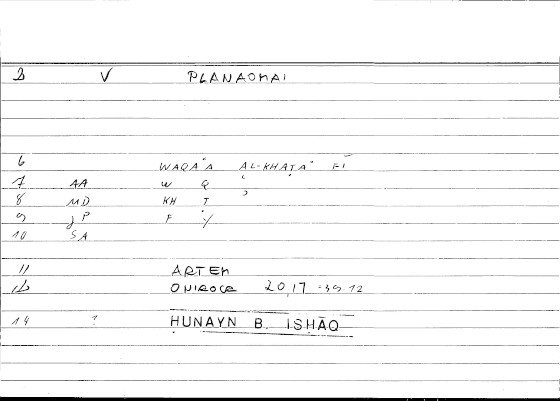 3 V PLANAOMAI
6 WAQAʿA AL-KHAṬAʾ FĪ
7 AA W Q ʿ
8 MD KH Ṭ ʾ
9 JP F Y
10 SA
11 ARTEM
12 ONIROCR 20,17 - 39.12
14 ? ḤUNAYN B. ISḤĀQ